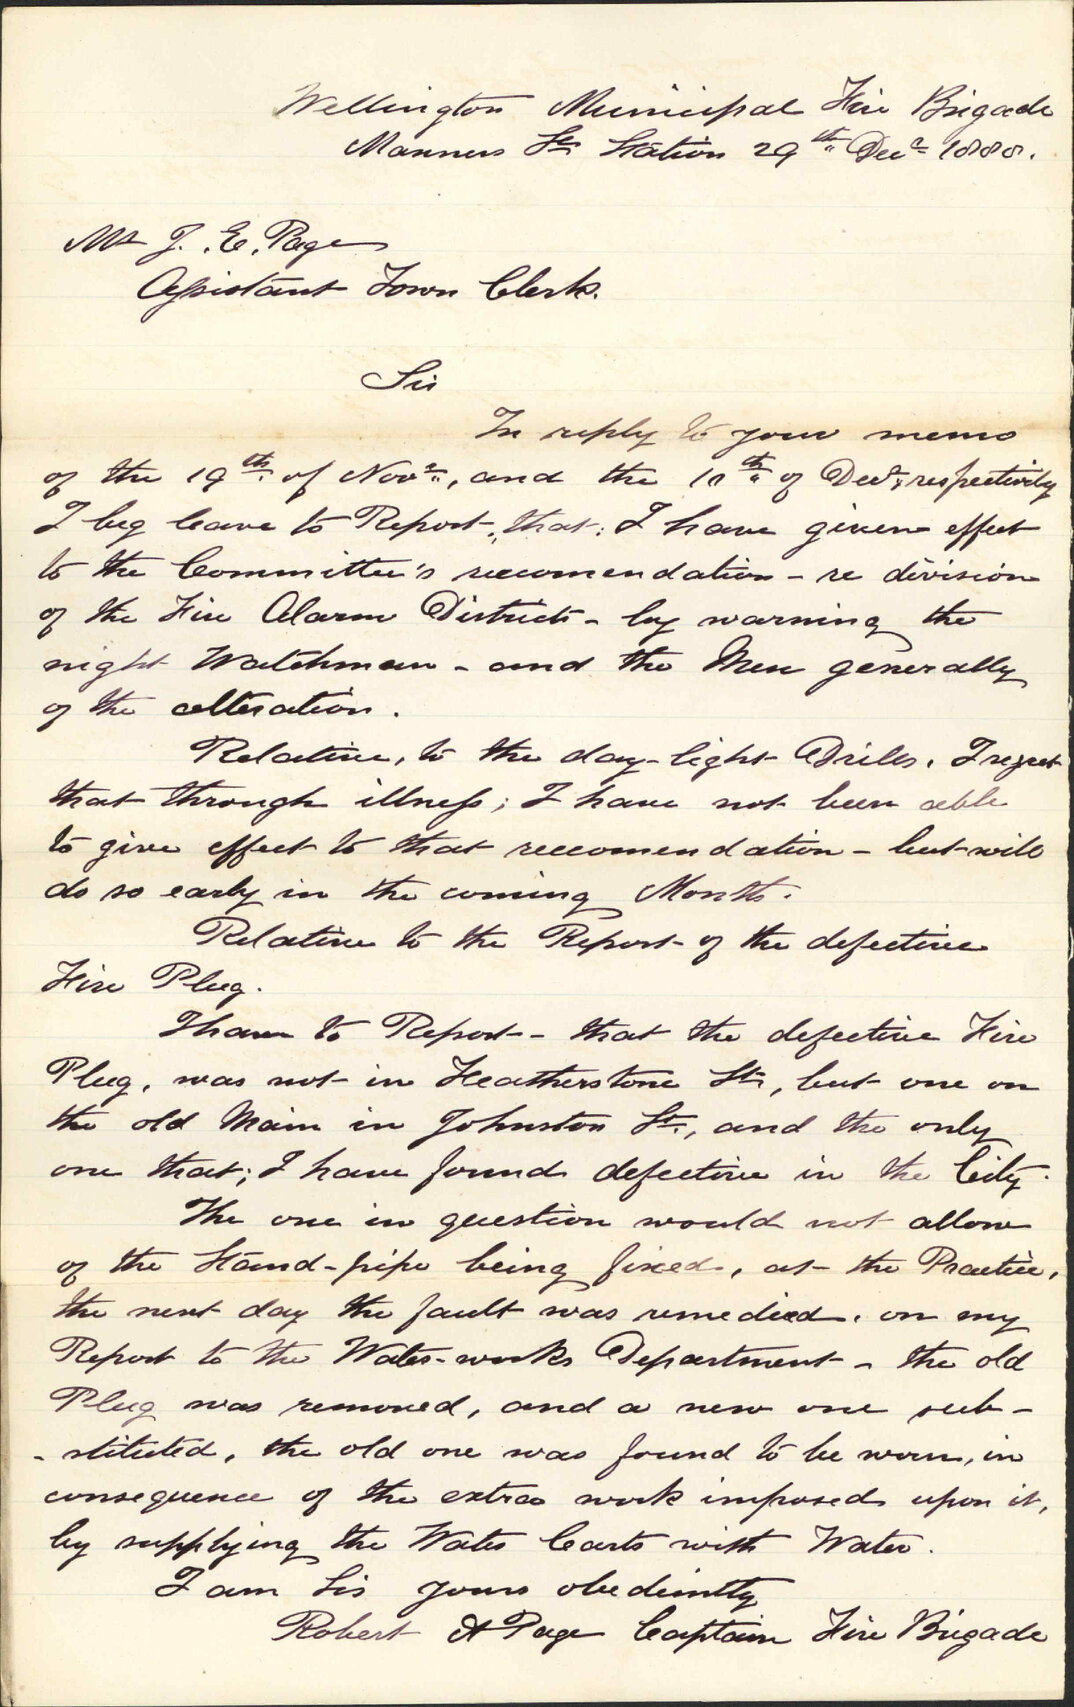 Wellington Municipal Fire Brigade
Manners St Station 29th Decr 1888.
Mr J. E. Page
Assistant Town Clerk.
Sir
In reply to your memo
of the 19th of Novr, and the 11th of Decr, respectively
I beg leave to Report, that; I have given effect
to the Committee's reccomendation - re division
of the Fire Alarm Districts - by warning the
night Watchman - and the Men generally
of the alteration.
Relative, to the day-light Drills. I regret
that through illness; I have not been able
to give effect to that reccomendation - but will
do so early in the coming Month.
Relative to the Report of the defective
Fire Plug.
I have to Report - that the defective Fire
Plug, was not in Featherstone St, but one on
the old Main in Johnston St, and the only
one that; I have found defective in the City.
The one in question would not allow
of the Stand-pipe being fixed, at the Practice,
the next day the fault was remedied. on my
Report to the Water-works Department - the old
Plug was removed, and a new one sub-
-stituted, the old one was found to be worn, in
consequence of the extra work imposed upon it,
by supplying the Water Carts with Water.
I am Sir yours obediently
Robert A Page Captain Fire Brigade